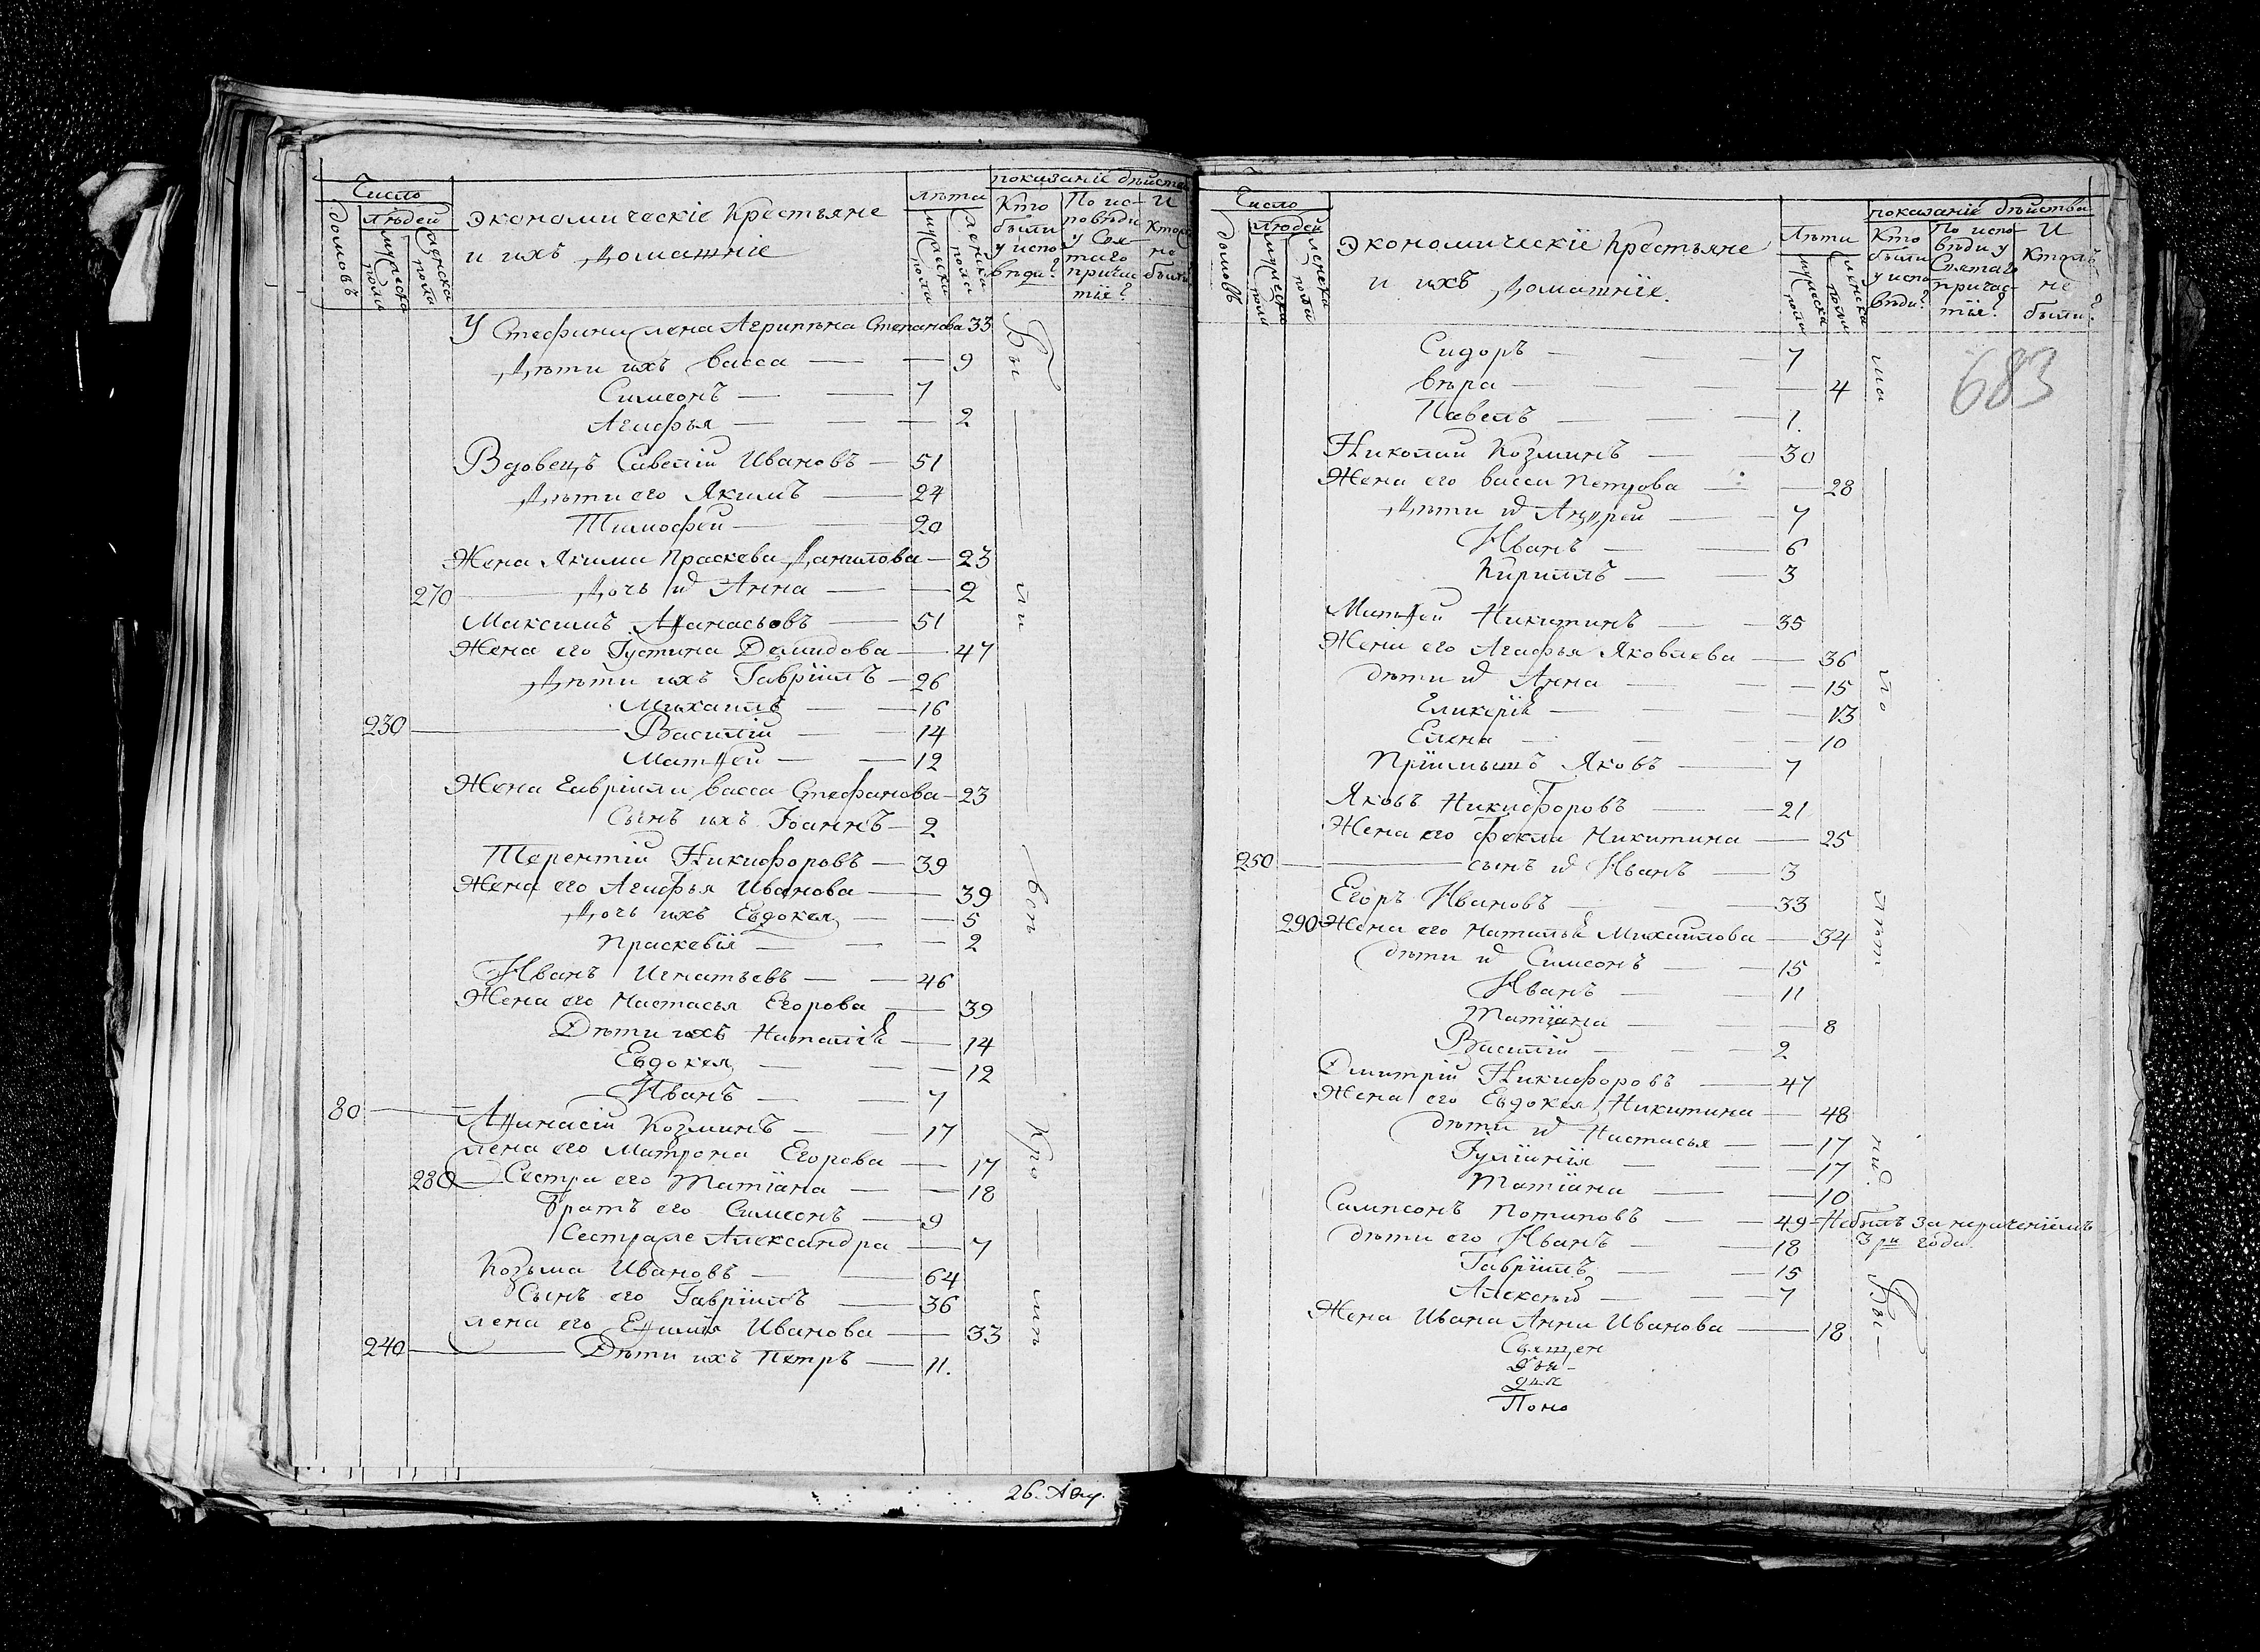 Число
Людей
домовъ
мужеска пола
женска пола
Экономическіе Крестьяне
и ихъ Домашніе
Лѣта
мужеска пола
женска пола
показаніе дѣйства
Кто были у исповѣди?
По исповѣди у Святаго причастіе?
И кто не были
У Стефана жена Агрипьна Степанова 33
Дѣти ихъ васса 9
Симеонъ 7
Агафья 2
Вдовецъ Савелій Ивановъ 51
Дѣти его Якимъ 24
Тимофей 20
Жена Якима Праскева Данилова 23
270 Дочь их Анна 2
Максимъ Аѳанасьовъ 51
Жена его Густина Демидова 47
Дѣти ихъ Гавріилъ 26
Михаилъ 16
230 Василій 14
Матѳей 12
Жена Гавріила васса Стефанова 23
Сынъ ихъ Іоаннъ 2
Терентій Никифоровъ 39
Жена его Агафья Иванова 39
Дочь ихъ Евдокея 5
Праскевія 2
Иванъ Игнатьевъ 46
Жена его Настасья Егорова 39
Дѣти ихъ Наталія 14
Евдокея 12
Иванъ 7
80 Аѳанасій Козминъ 17
жена его Матрона Егорова 17
280 Сестра его Татіана 18
Братъ его Симеонъ 9
Сестра же Александра 7
Козьма Ивановъ 64
Сынъ его Гавріилъ 36
жена его Еѳимья Иванова 33
240 Дѣти ихъ Петръ 11.
Бы
ли
вси
Кро
26. Авгу.
Число
Людей
домовъ
мужеска пола
женска пола
Экономическіе Крестьяне
и ихъ Домашніе.
Лѣта
мужеска пола
женска пола
показаніе дѣйства
Кто были у исповѣди?
По исповѣди у Святаго причастіе?
И ктожъ не были?
683
Сидоръ 7
вѣра 4
Павелъ 1.
Николай Козминъ 30
Жена его васса Петрова 28
Дѣти их Андрей 7
Иванъ 6
Кириллъ 3
Матѳей Никитинъ 35
Жена его Агафья Яковлева 36
дѣти их Анна 15
Гликерія 13
Елена 10
Пріимышъ Яковъ 7
Яковъ Никифоровъ 21
Жена его Фекла Никитина 25
250 сынъ их Иванъ 3
Егоръ Ивановъ 33
290 Жена его Наталья Михаилова 34
дѣти их Симеонъ 15
Иванъ 11
Татіана 8
Василій 2
Дмитрій Никифоровъ 47
Жена его Евдокея Никитина 48
дѣти их Настасья 17
Іуліанія 17
Татіана 10
Сампсонъ Потаповъ 49 Небылъ за нерачениемъ
3 ри года
дѣти его Иванъ 18
Гавріилъ 15
Алексѣй 7
Жена Ивана Анна Иванова 18
Бы
Священ
Дья
Поно